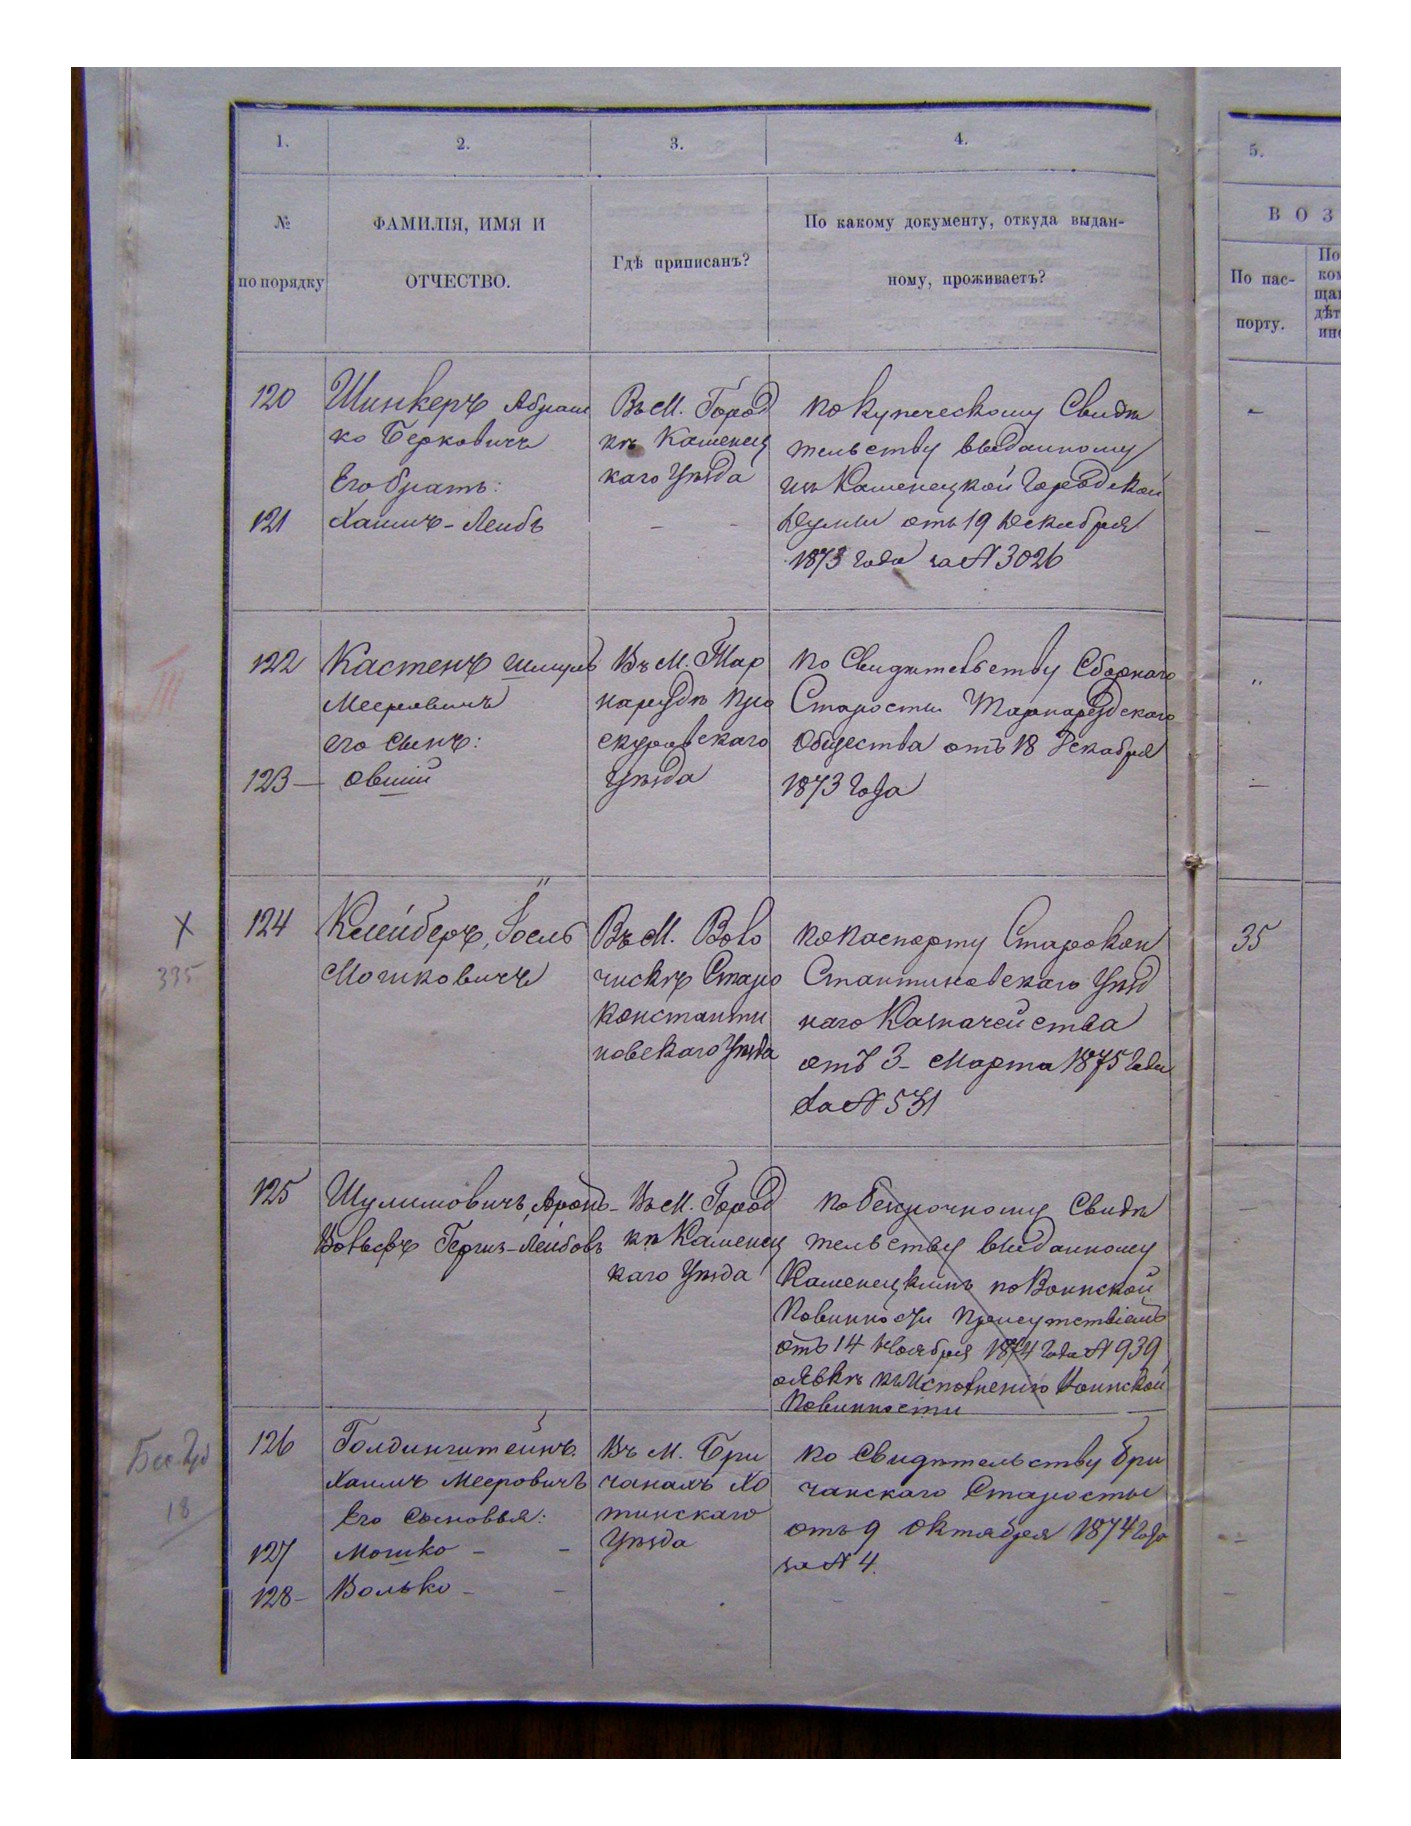 1.
2.
3.
4.
5.
№
по порядку
ФАМИЛІЯ, ИМЯ И
ОТЧЕСТВО.
Гдѣ приписанъ?
По какому документу, откуда выдан-
ному, проживаетъ?
ВОЗ
По пас-
порту.
120
Шинкеръ Абрам
ко Берковичъ
Его братъ:
121 Хаимъ-Лейбъ
Въ М. Город
кѣ Каменец
каго Уѣзда
по Купеческому Свидѣ
тельству выданному
изъ Каменецкой Городской
Думы отъ 19 Декабря
1873 года за № 3026
122
Кастенъ Шмуль
Мееровичъ
его сынъ:
123 – Овшій
Въ М. Тар
нарудѣ Про
скуровскаго
Уѣзда
по Свидѣтельству Сборнаго
Старосты Тарнарудскаго
Общества отъ 18 Декабря
1873 Года
"
124
Клейберъ, Іосль
Мошковичъ
Въ М. Воло
чискѣ Старо
константи
новскаго Уѣзда
по паспорту Старокон
стантиновскаго Уѣзд
наго Казначейства
отъ 3 – Марта 1875 Года
за № 531
35
X
335
125
Шулимовичъ, Аронъ-
Вольфъ Гершъ-Лейбовъ
Въ М. Город
кѣ Каменец
каго Уѣзда
по безсрочному Свидѣ
тельству выданному
Каменецкимъ по Воинской
Повинности Присутствіемъ
отъ 14 Ноября 1874 Года № 939
о явкѣ къ исполненію Воинской
Повинности
126
Голдингштейнъ
Хаимъ Мееровичъ
Его сыновья:
127 Мошко –
128 – Волько –
Въ М. Бри
чанахъ Хо
тинскаго
Уѣзда
по Свидѣтельству Бри
чанскаго Старосты
отъ 9 Октября 1874 Года
за № 4.
18